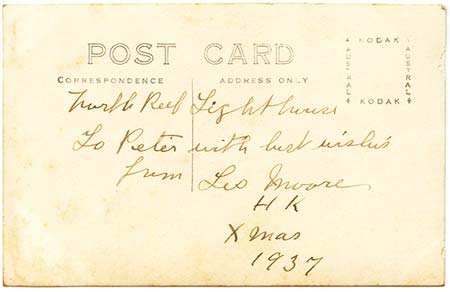 POST CARD
KODAK
AUSTRAL
AUSTRAL
KODAK
CORRESPONDENCE
ADDRESS ONLY
North Reef Lighthouse
To Peter with best wishes
from Les Moore
H K
Xmas
1937